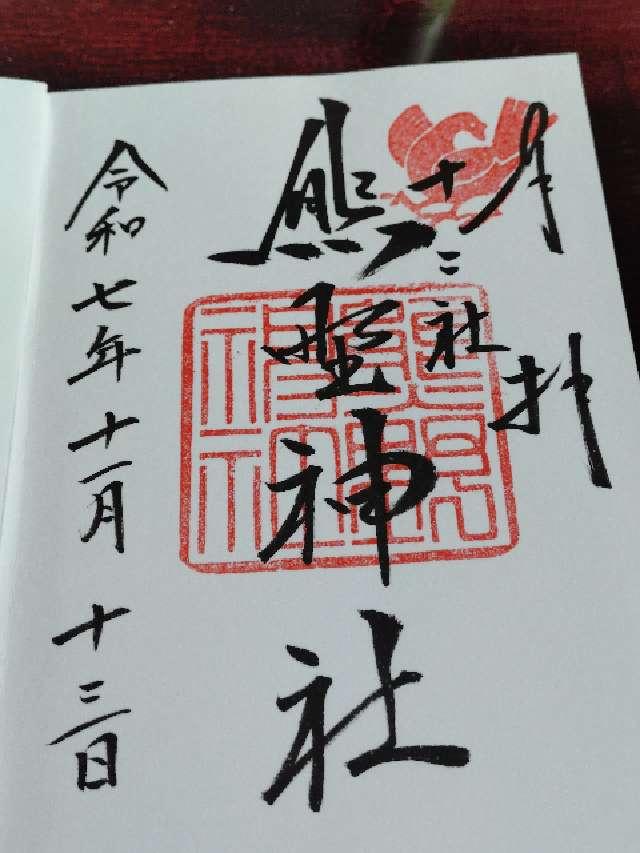 奉拝
十二社
熊野神社
令和七年十一月十三日